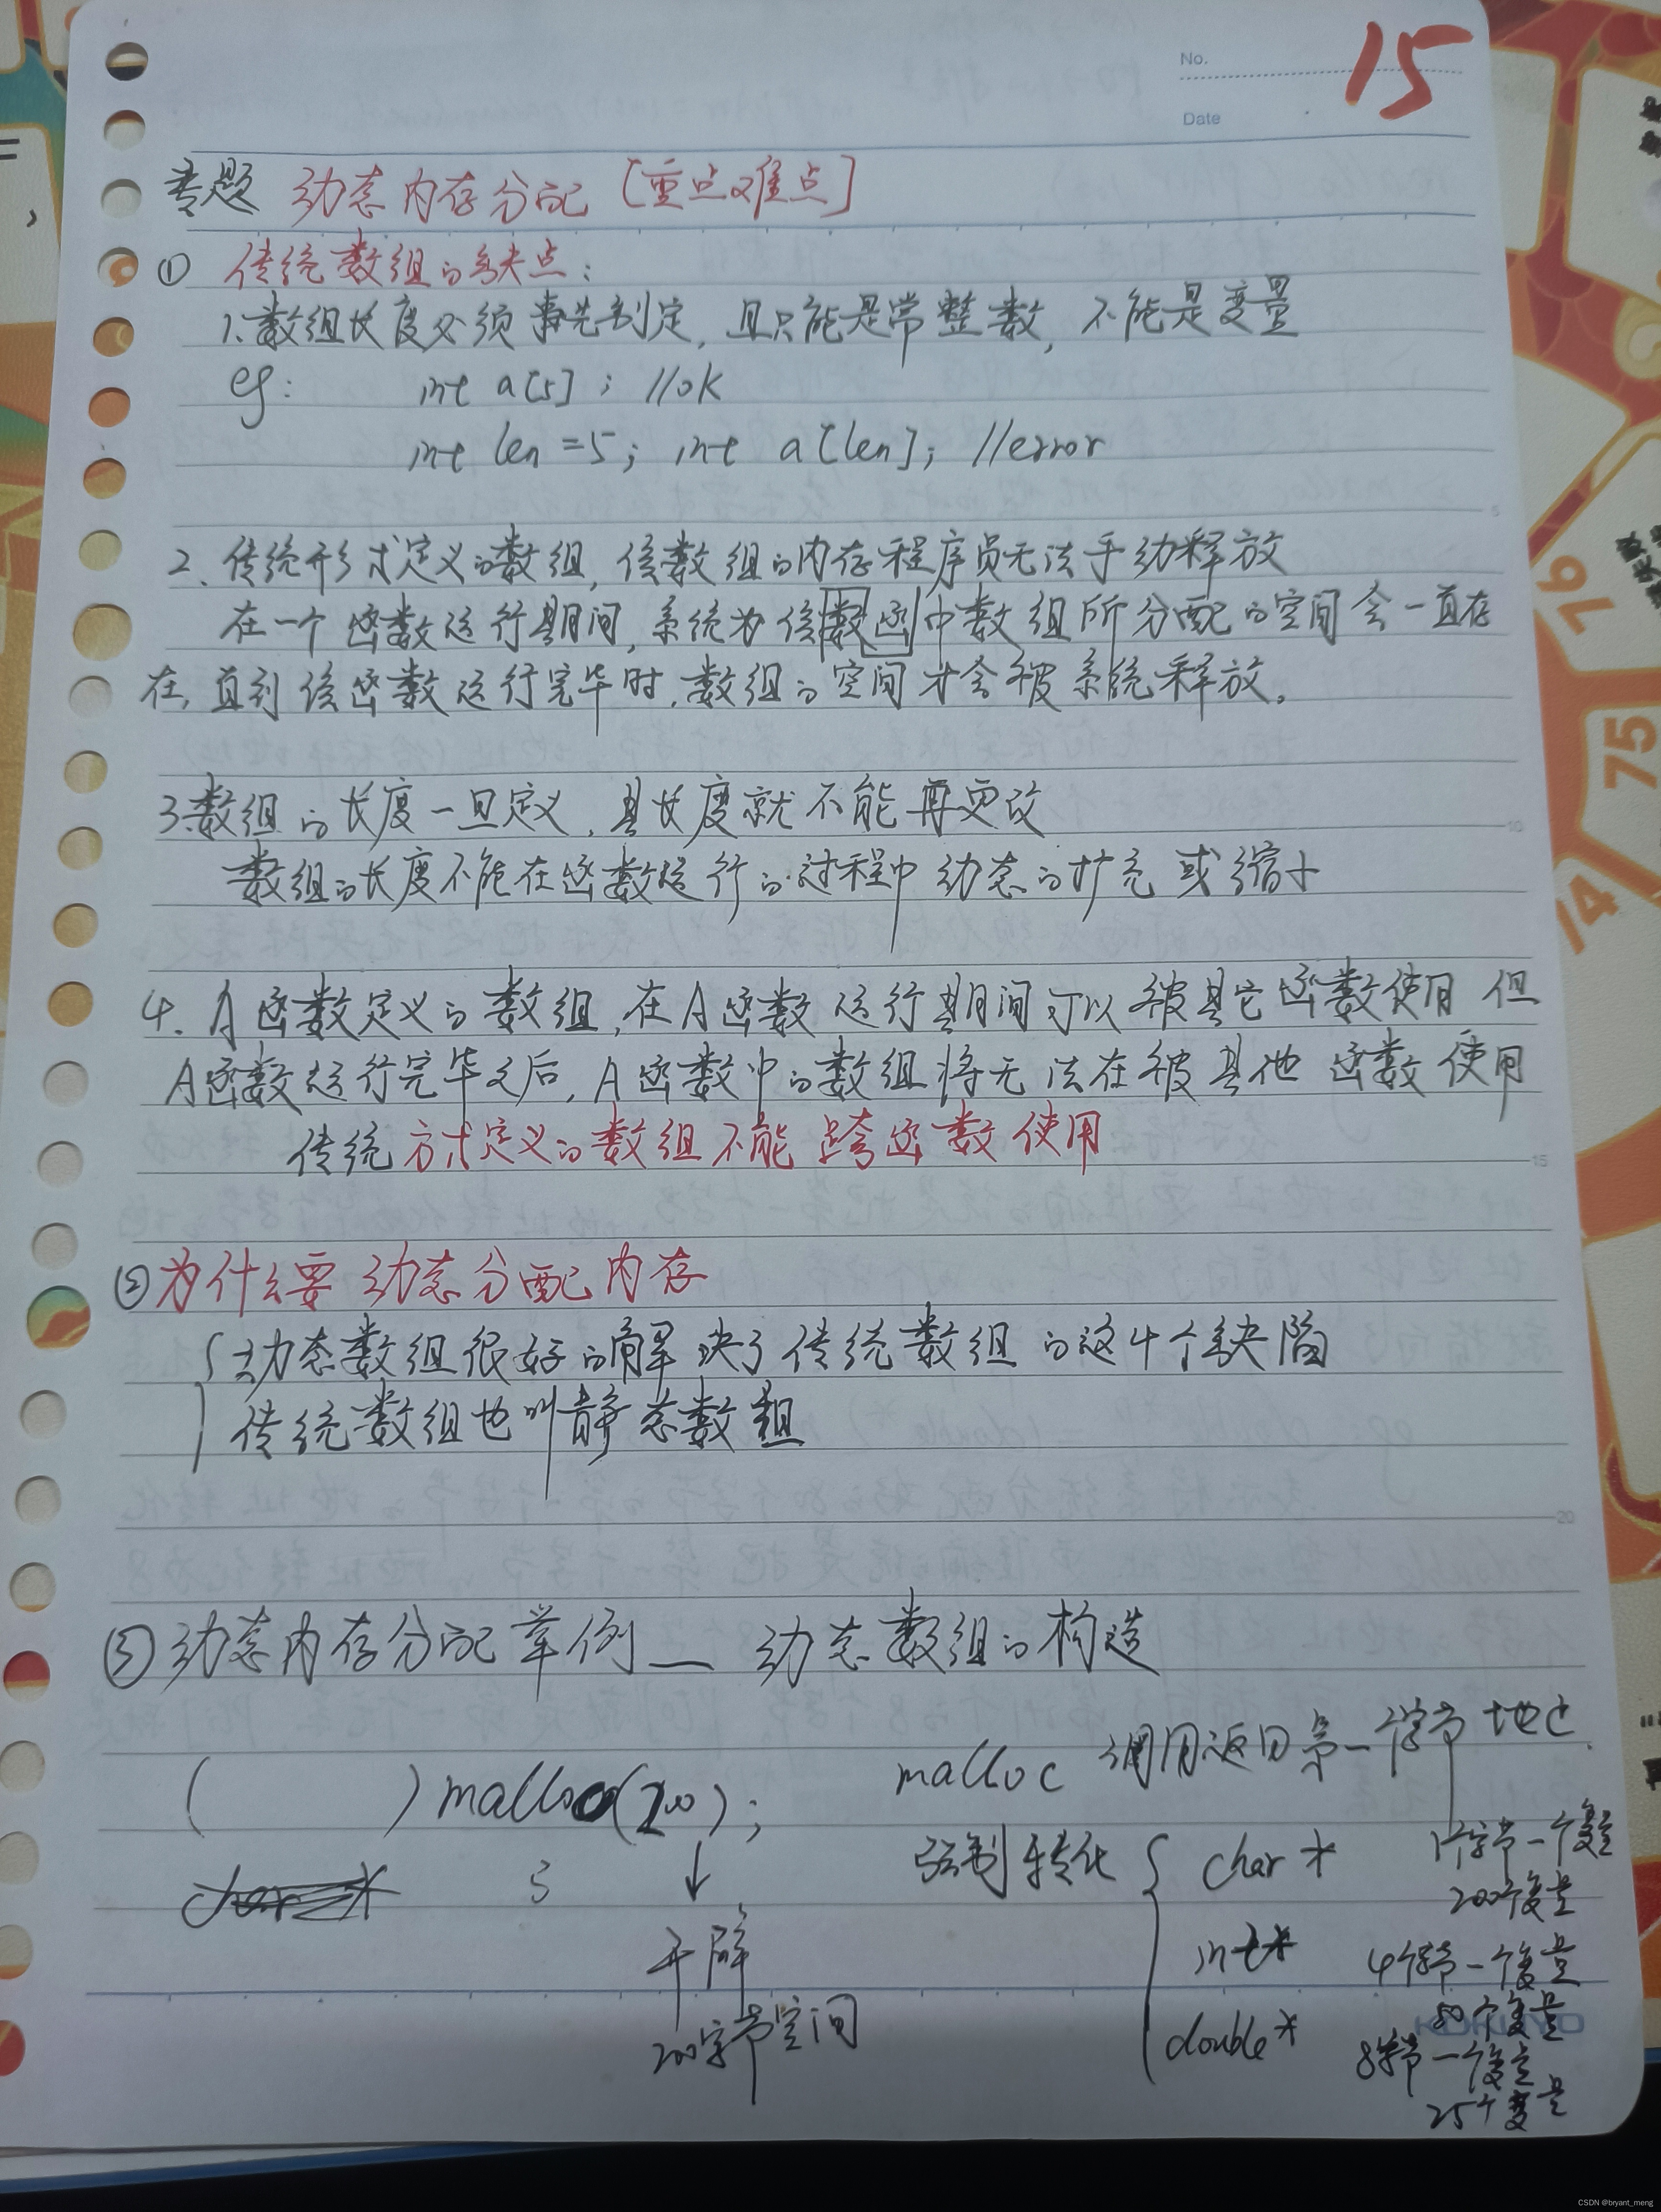 No.
15
Date
专题 动态内存分配 [重点难点]
① 传统数组的缺点:
1.数组长度必须事先制定,且只能是常整数,不能是变量
eg: int a[5]; //ok
int len=5; int a[len]; //error
2、传统形式定义的数组,该数组的内存程序员无法手动释放
在一个函数运行期间,系统为该数函中数组所分配的空间会一直存
在,直到该函数运行完毕时,数组的空间才会被系统释放。
3.数组的长度一旦定义,其长度就不能再更改
数组的长度不能在函数运行的过程中动态的扩充或缩小
4、A函数定义的数组,在A函数运行期间可以被其它函数使用 但
A函数运行完毕之后,A函数中的数组将无法在被其他函数使用
传统方式定义的数组不能跨函数使用
②为什么要动态分配内存
动态数组很好的解决了传统数组的这4个缺陷
传统数组也叫静态数组
③动态内存分配举例__动态数组的构造
malloc 调用返回第一个字节地址
( )malloc(200);
强制转化 { char * 1个字节一个变量
200个变量
char *
↓
开辟
int* 4个字节一个变量
50个变量
200字节空间
double* 8字节一个变量
25个变量
5
10
15
20
76
75
74
CSDN @bryant_meng